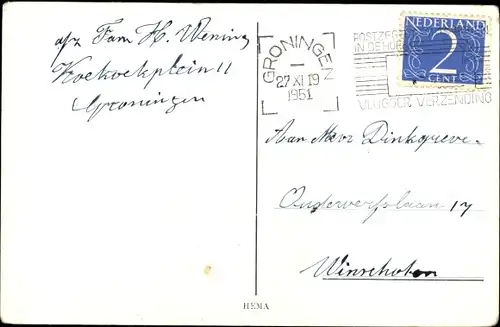 afz Fam H. Wening
Koekoekplein 11
Groningen
GRONINGEN
27 XI 19
1951
POSTZEG
IN DE HOE
VLUGGER VERZENDING
NEDERLAND
2
CENT
Aan Mevr Dinkgreve.
17
Winschoten
HEMA